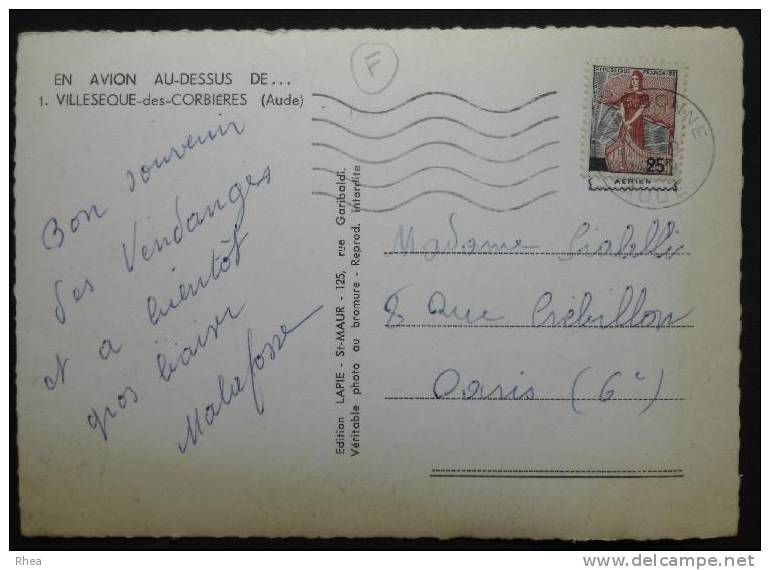 EN AVION AU-DESSUS DE...
1. VILLESEQUE-des-CORBIERES (Aude)
F
Bon souvenir
des Vendanges
et a bientôt
gros baiser
Malafosse
Edition LAPIE - St-MAUR - 125, rue Garibaldi.
Véritable photo au bromure - Reprod. interdite
REPUBLIQUE FRANCAISE
25F
AERIEN
Madame
8 Rue Crébillon
Paris (6e)
Rhea
delcampe.net